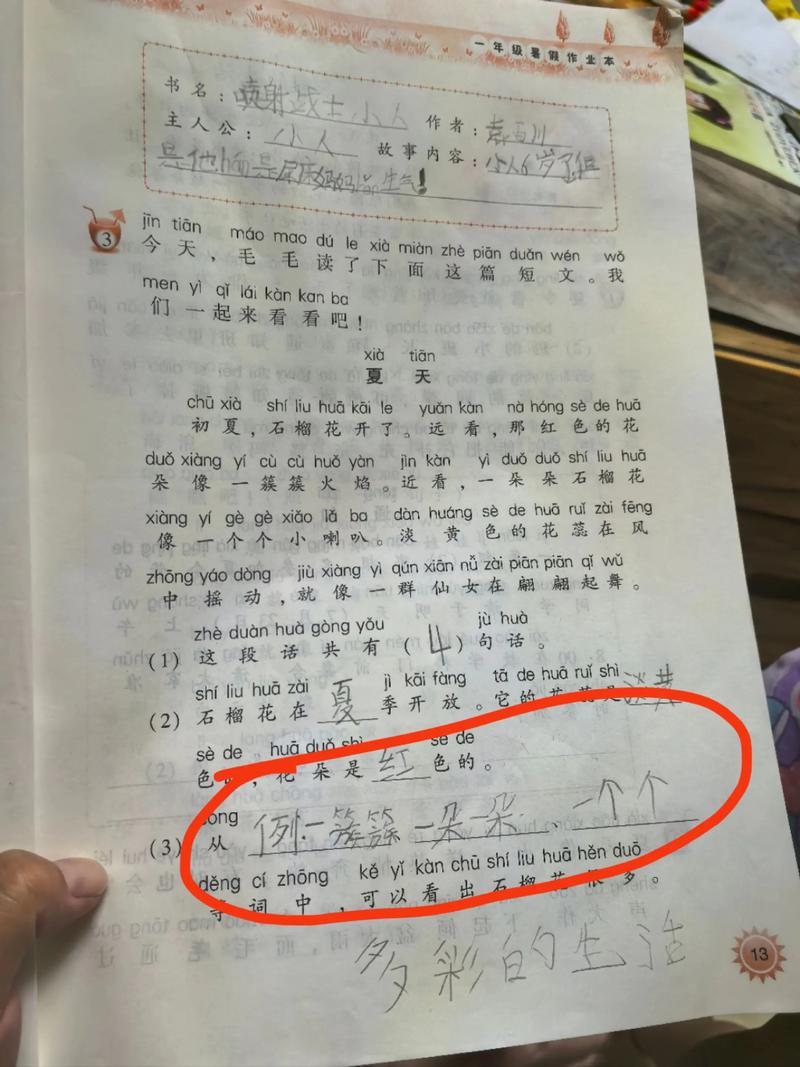 一年级暑假作业本
书名：喷射战士小人 作者：袁西川
主人公：小人 故事内容：小人6岁了但
是他 是尿床妈妈 生气！
3
jīn tiān máo mao dú le xià miàn zhè piān duǎn wén wǒ
今天，毛毛读了下面这篇短文。我
men yì qǐ lái kàn kan ba
们一起来看看吧！
xià tiān
夏天
chū xià shí liu huā kāi le yuǎn kàn nà hóng sè de huā
初夏，石榴花开了。远看，那红色的花
duǒ xiàng yí cù cù huǒ yàn jìn kàn yì duǒ duǒ shí liu huā
朵像一簇簇火焰。近看，一朵朵石榴花
xiàng yí gè gè xiǎo lǎ ba dàn huáng sè de huā ruǐ zài fēng
像一个个小喇叭。淡黄色的花蕊在风
zhōng yáo dòng jiù xiàng yì qún xiān nǚ zài piān piān qǐ wǔ
中摇动，就像一群仙女在翩翩起舞。
zhè duàn huà gòng yǒu jù huà
(1) 这段话共有（4）句话。
shí liu huā zài jì kāi fàng tā de huā ruǐ shì
(2) 石榴花在夏季开放。它的花蕊是淡黄
sè de huā duǒ shì sè de
色的，花朵是红色的。
cóng
(3) 从例：一簇簇 一朵一朵、一个个
děng cí zhōng kě yǐ kàn chū shí liu huā hěn duō
等词中，可以看出石榴花很多。
多彩的生活
13